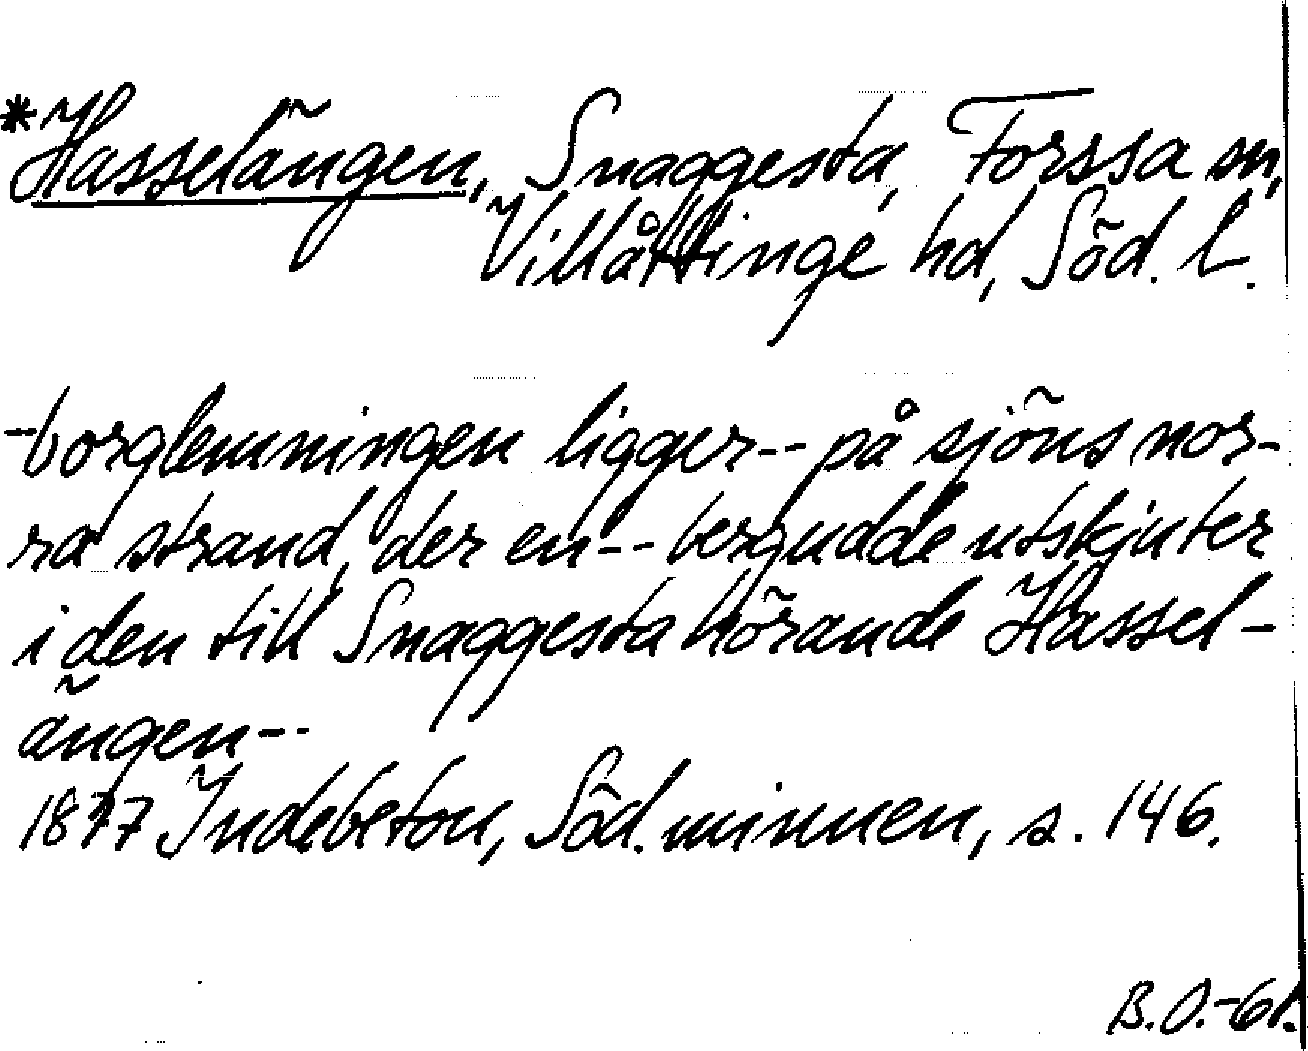 *Hasselängen, Snaggesta, Forssa sn,
Villåttinge hd, Söd. l.
-borglemningen ligger-- på sjöns nor-
ra strand, der en-- bergudde utskjuter
i den till Snaggesta hörande Hassel-
ängen--
1877 Indebetou, Söd. minnen, s. 146.
B.O.-61.